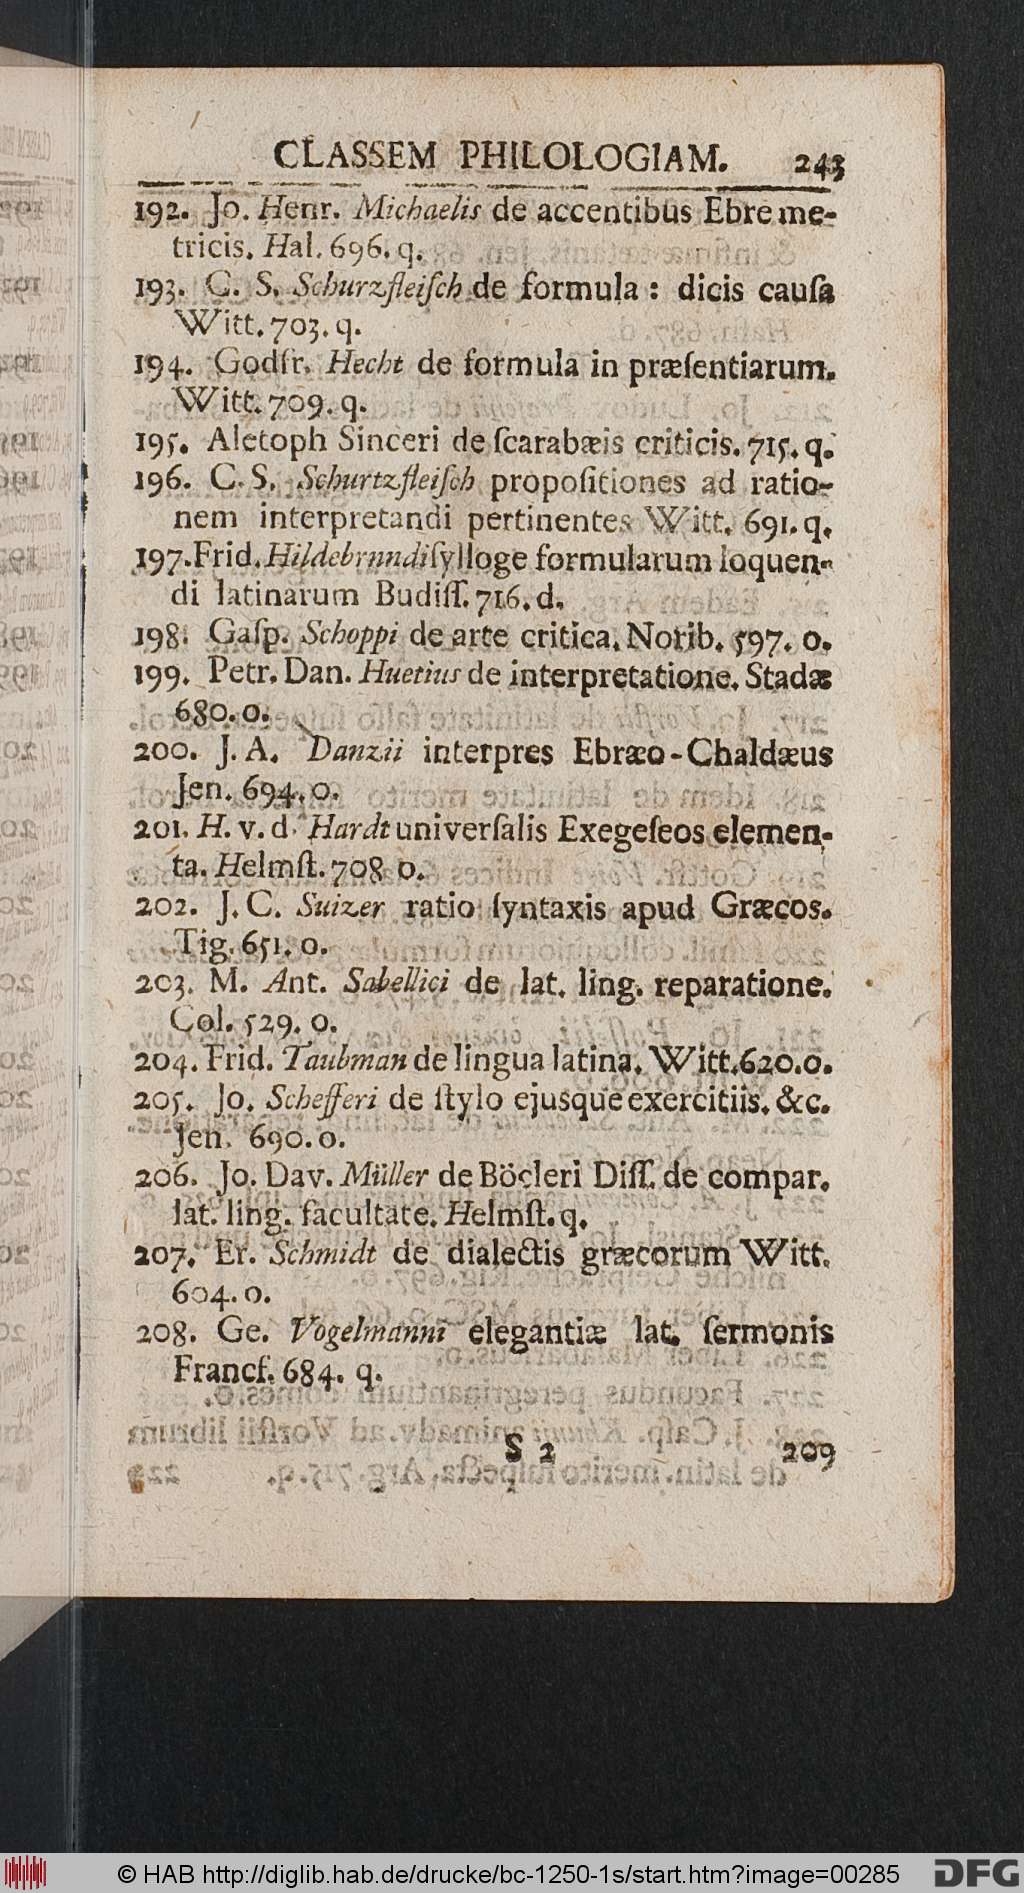 CLASSEM PHILOLOGIAM. 243
192. Jo. Henr. Michaelis de accentibus Ebre me-
tricis. Hal. 696. q.
193. C. S. Schurzfleiſch de formula : dicis cauſa
Witt. 703. q.
194. Godfr. Hecht de formula in præſentiarum.
Witt. 709. q.
195. Aletoph Sinceri de ſcarabæis criticis. 715. q.
196. C. S. Schurtzfleiſch propoſitiones ad ratio-
nem interpretandi pertinentes Witt. 691. q.
197. Frid. Hildebrandi ſylloge formularum loquen-
di latinarum Budiſſ. 716. d.
198. Gaſp. Schoppi de arte critica. Norib. 597. o.
199. Petr. Dan. Huetius de interpretatione. Stadæ
680. o.
200. J. A. Danzii interpres Ebræo-Chaldæus
Jen. 694. o.
201. H. v. d. Hardt univerſalis Exegeſeos elemen-
ta. Helmſt. 708 o.
202. J. C. Suizer ratio ſyntaxis apud Græcos.
Tig. 651. o.
203. M. Ant. Sabellici de lat. ling. reparatione.
Col. 529. o.
204. Frid. Taubman de lingua latina. Witt. 620. o.
205. Jo. Schefferi de ſtylo ejusque exercitiis. &c.
Jen. 690. o.
206. Jo. Dav. Müller de Böcleri Diſſ. de compar.
lat. ling. facultate. Helmſt. q.
207. Er. Schmidt de dialectis græcorum Witt.
604. o.
208. Ge. Vogelmanni elegantiæ lat. ſermonis
Francf. 684. q.
S 2 209
© HAB http://diglib.hab.de/drucke/bc-1250-1s/start.htm?image=00285 DFG